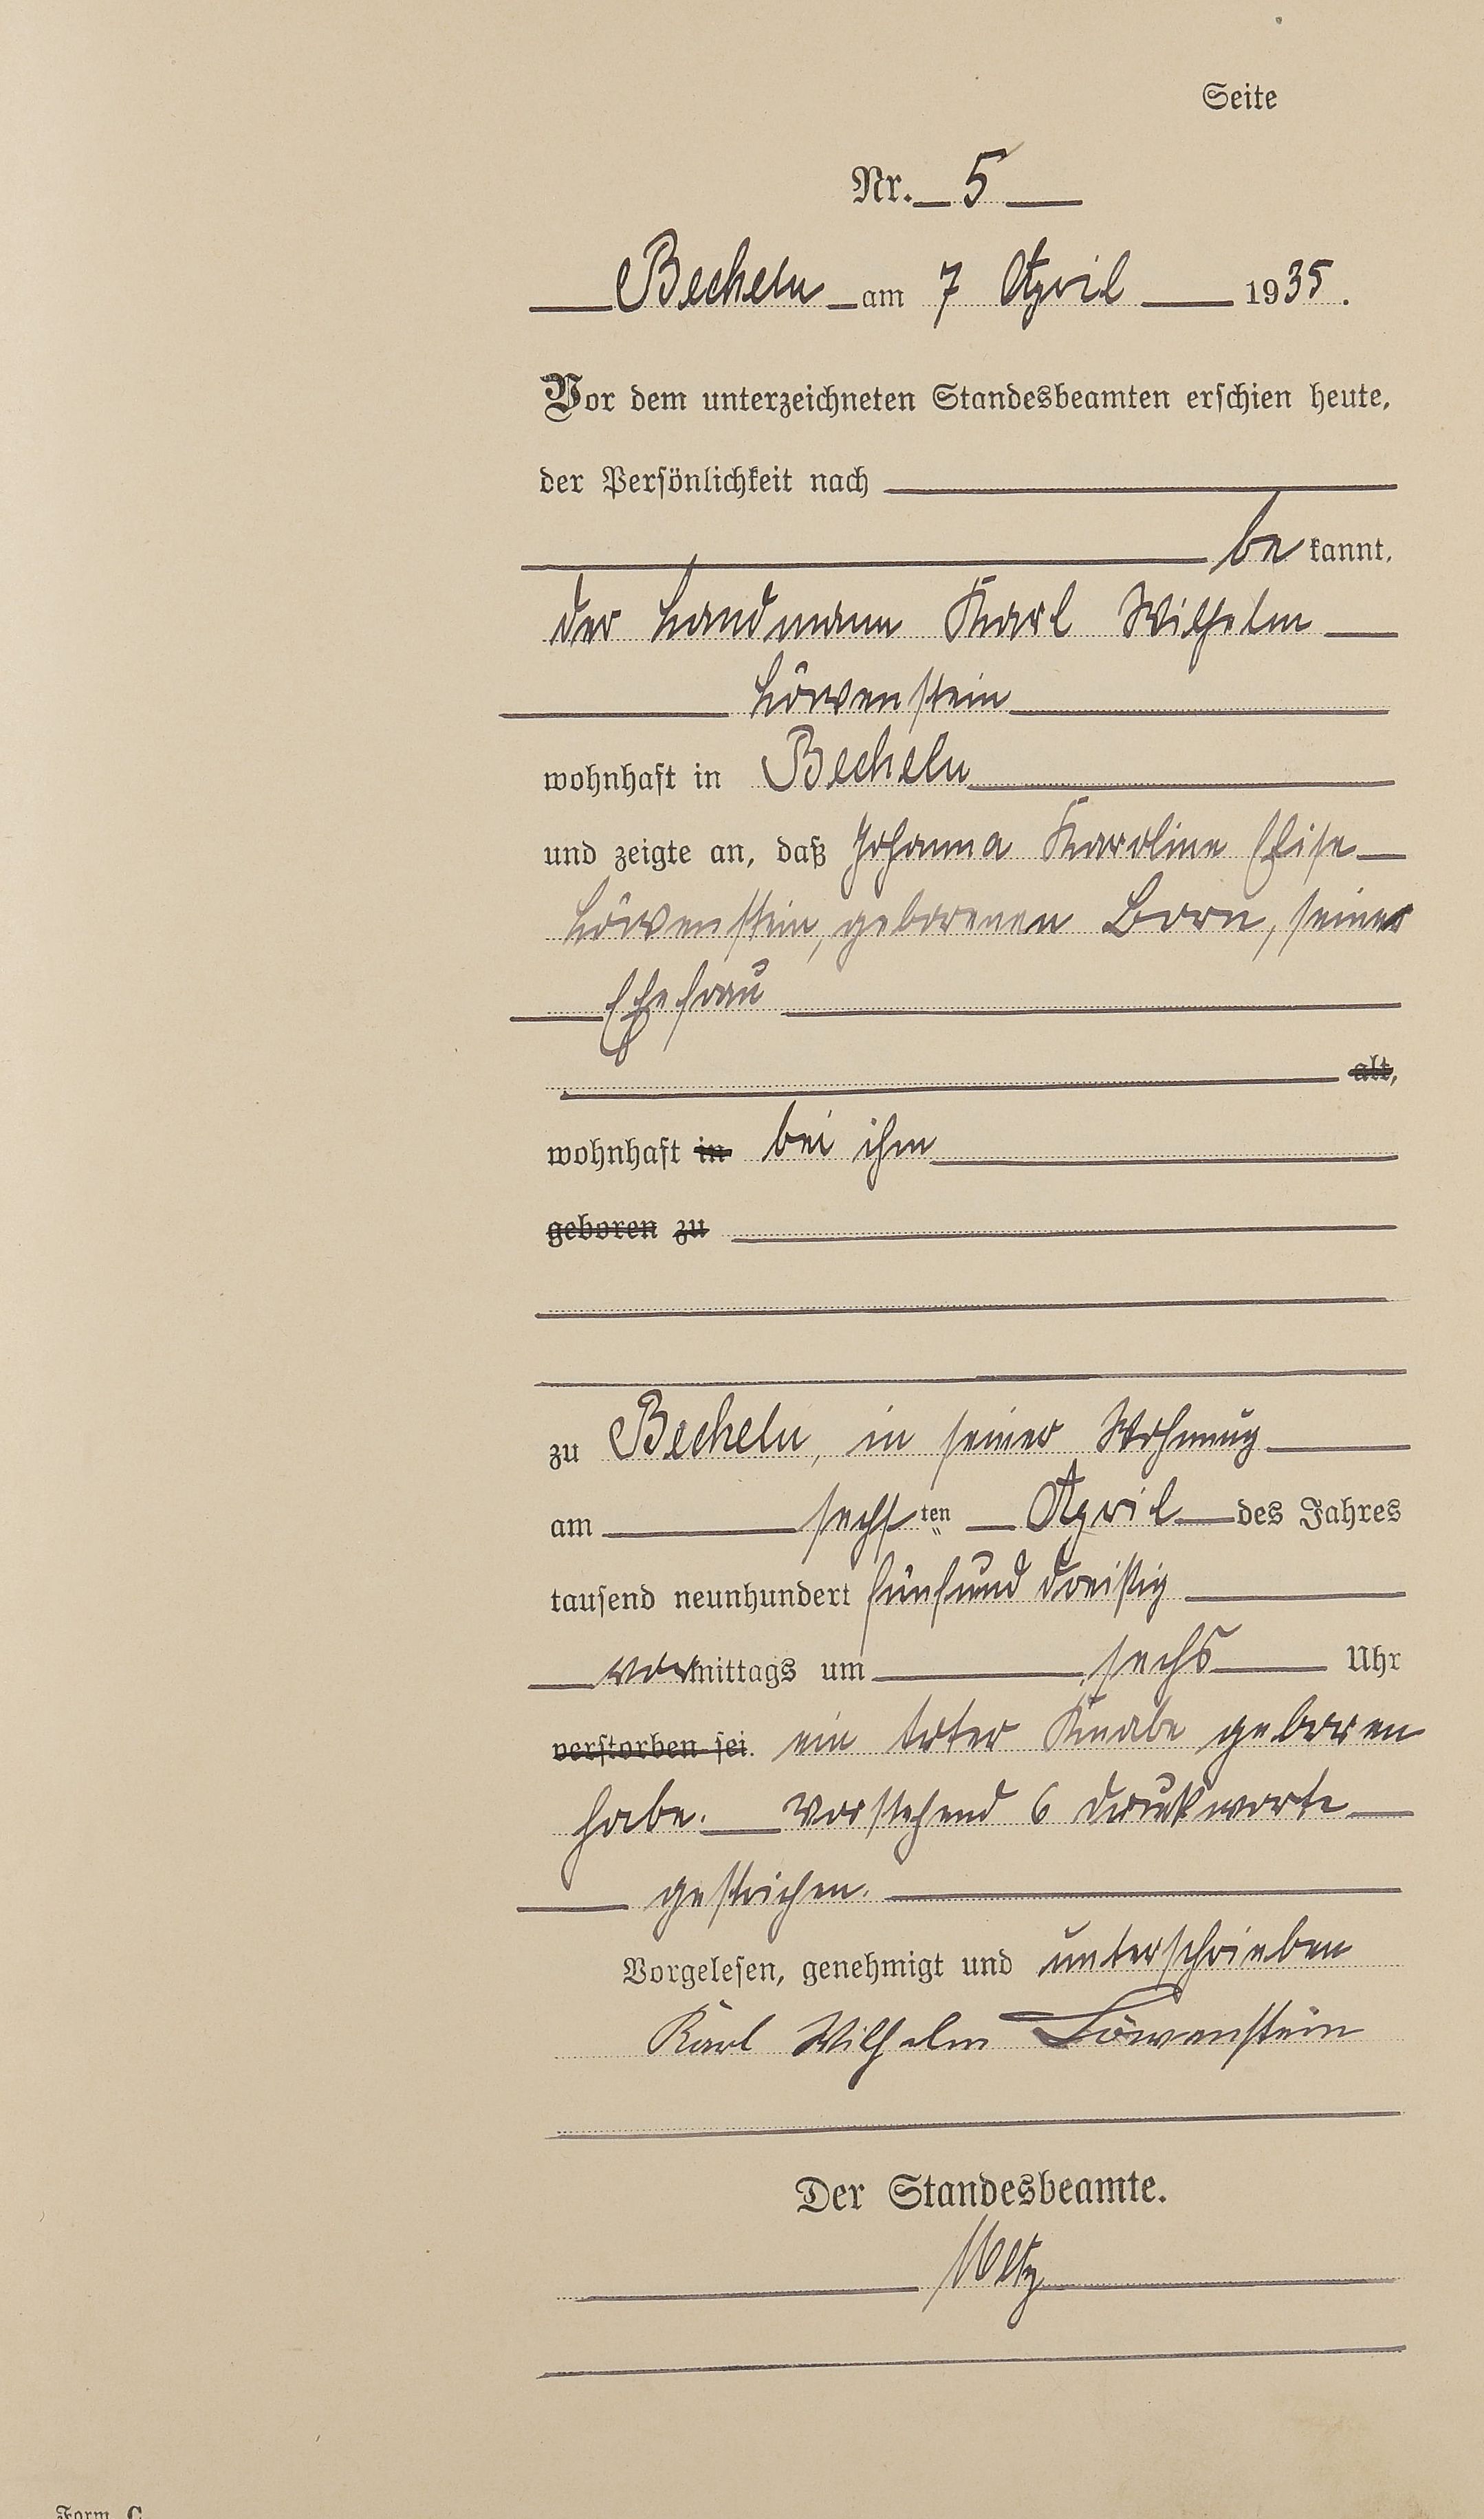 Seite
Nr. 5
Becheln am 7 April 1935.
Vor dem unterzeichneten Standesbeamten erschien heute,
der Persönlichkeit nach
be kannt,
der Landmann Karl Wilhelm
Löwenstein
wohnhaft in Becheln
und zeigte an, daß Johanna Karoline Elise
Löwenstein, geborenen Born, seiner
Ehefrau
alt,
wohnhaft in bei ihm
geboren zu
zu Becheln, in seiner Wohnung
am sechsten April des Jahres
tausend neunhundert fünfund dreißig
vormittags um sechs Uhr
verstorben sei. ein toter Knabe geboren
habe. Vorstehend 6 Druckworte
gestrichen.
Vorgelesen, genehmigt und unterschrieben
Karl Wilhelm Löwenstein
Der Standesbeamte.
Metz
Form. C